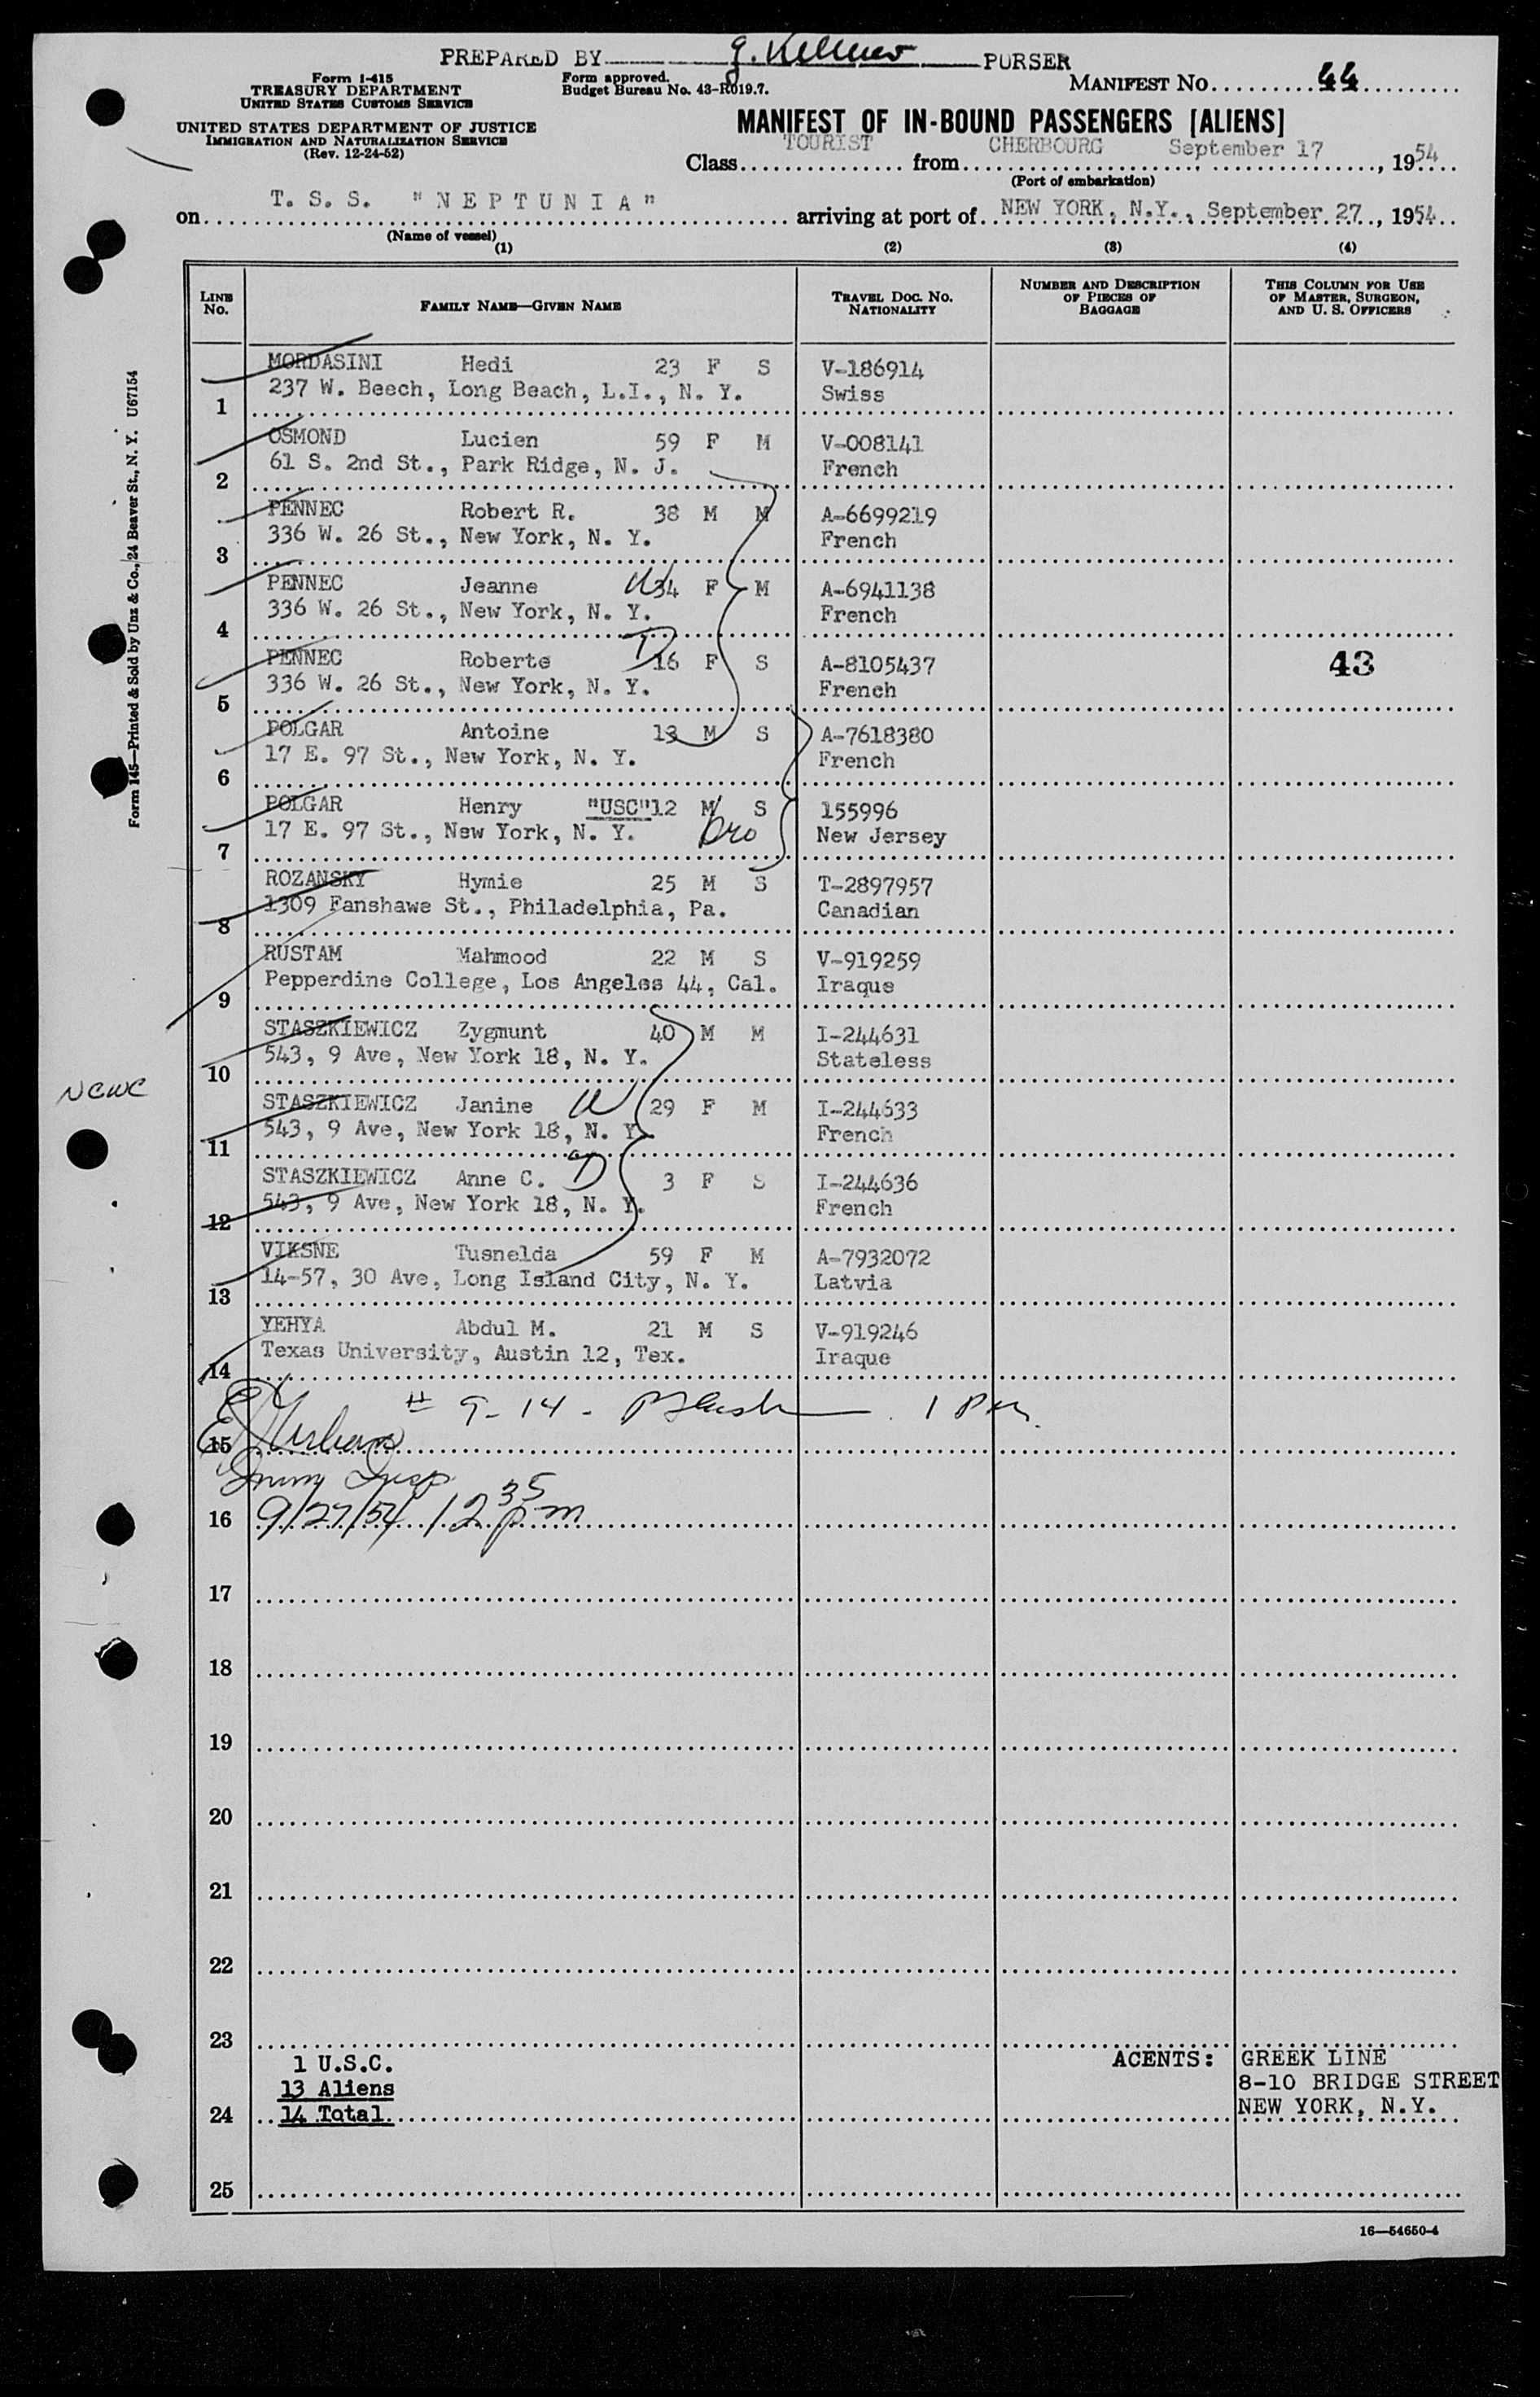 PREPARED BY g. Kellner PURSER
Form I-415
TREASURY DEPARTMENT
UNITED STATES CUSTOMS SERVICE
Form approved.
Budget Bureau No. 43-R019.7.
MANIFEST No. 44
UNITED STATES DEPARTMENT OF JUSTICE
IMMIGRATION AND NATURALIZATION SERVICE
(Rev. 12-24-52)
MANIFEST OF IN-BOUND PASSENGERS [ALIENS]
Class TOURIST from CHERBOURG September 17, 1954
(Port of embarkation)
on T. S. S. "NEPTUNIA" arriving at port of NEW YORK, N.Y., September 27, 1954
(Name of vessel)
(1) (2) (3) (4)
LINE No. FAMILY NAME—GIVEN NAME TRAVEL DOC. NO. NATIONALITY NUMBER AND DESCRIPTION OF PIECES OF BAGGAGE THIS COLUMN FOR USE OF MASTER, SURGEON, AND U. S. OFFICERS
MORDASINI Hedi 23 F S V-186914
1 237 W. Beech, Long Beach, L.I., N. Y. Swiss
OSMOND Lucien 59 F M V-008141
2 61 S. 2nd St., Park Ridge, N. J. French
PENNEC Robert R. 38 M M A-6699219
3 336 W. 26 St., New York, N. Y. French
PENNEC Jeanne W 34 F M A-6941138
4 336 W. 26 St., New York, N. Y. French
PENNEC Roberte D 16 F S A-8105437 43
5 336 W. 26 St., New York, N. Y. French
POLGAR Antoine 13 M S A-7618380
6 17 E. 97 St., New York, N. Y. French
POLGAR Henry "USC" 12 M S 155996
7 17 E. 97 St., New York, N. Y. Bro New Jersey
ROZANSKY Hymie 25 M S T-2897957
8 1309 Fanshawe St., Philadelphia, Pa. Canadian
RUSTAM Mahmood 22 M S V-919259
9 Pepperdine College, Los Angeles 44, Cal. Iraque
STASZKIEWICZ Zygmunt 40 M M I-244631
10 543, 9 Ave, New York 18, N. Y. Stateless
NCWC
STASZKIEWICZ Janine W 29 F M I-244633
11 543, 9 Ave, New York 18, N. Y. French
STASZKIEWICZ Anne C. D 3 F S I-244636
12 543, 9 Ave, New York 18, N. Y. French
VIKSNE Tusnelda 59 F M A-7932072
13 14-57, 30 Ave, Long Island City, N. Y. Latvia
YEHYA Abdul M. 21 M S V-919246
14 Texas University, Austin 12, Tex. Iraque
# 9-14 - 1 PM.
15
Imm Insp
16 9/27/54 12 35 pm
17
18
19
20
21
22
23
1 U.S.C. AGENTS: GREEK LINE
13 Aliens 8-10 BRIDGE STREET
24 14 Total NEW YORK, N.Y.
25
16—54650-4
Form 145—Printed & Sold by Unz & Co., 24 Beaver St., N. Y. U67154